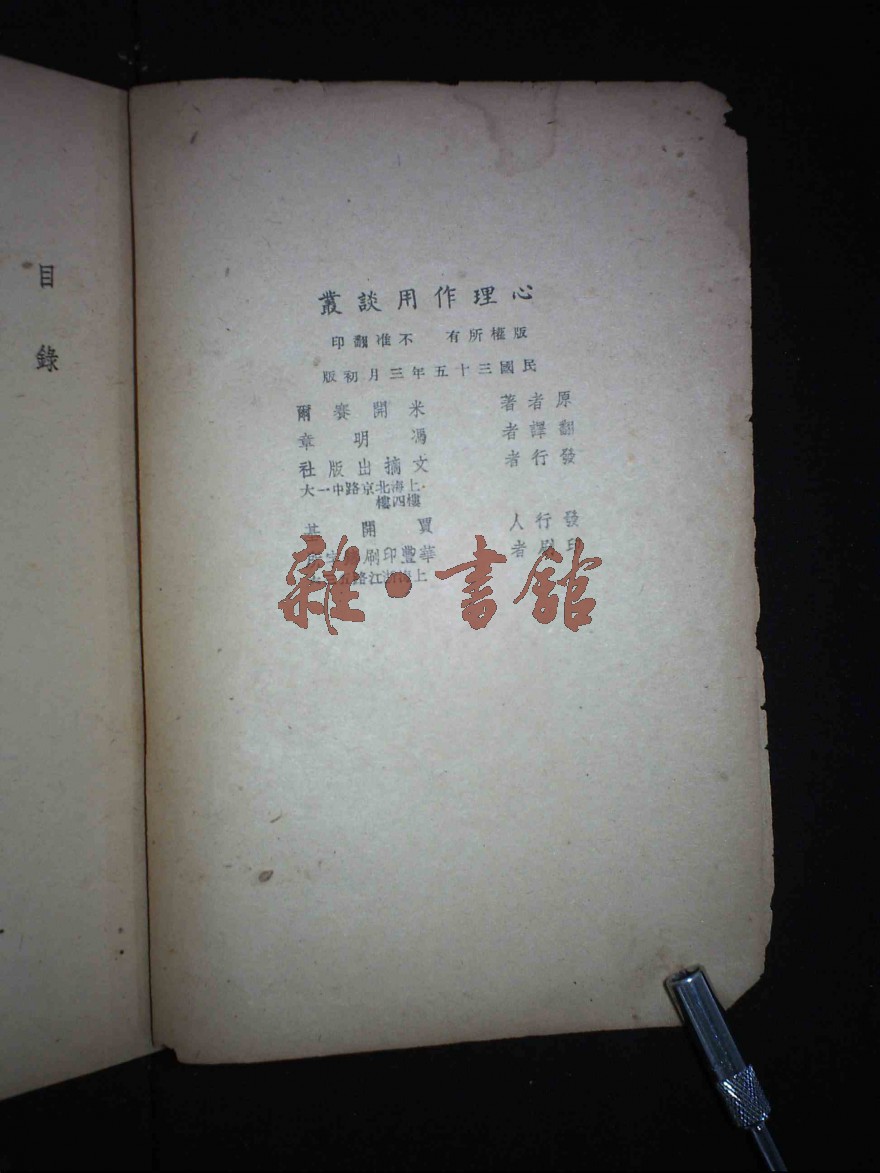 心理作用談叢
版權所有 不准翻印
民國三十五年三月初版
原著者 米開賽爾
翻譯者 馮明章
發行者 文摘出版社
上海北京路中一大
樓四樓
發行人 賈開基
印刷者 華豐印刷所
上海浙江路五
雜·書館
目錄